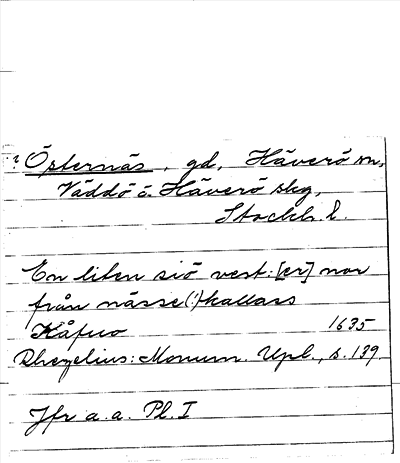 ? Östernäs, gd, Häverö sn,
Väddö o. Häverö skg,
Stockh. l.
En liten siö vest:[er] nor
från nässe(!) kallass
Kåfuo 1635
Rhezelius: Monum. Upl., s. 139.
Jfr a. a. Pl. I